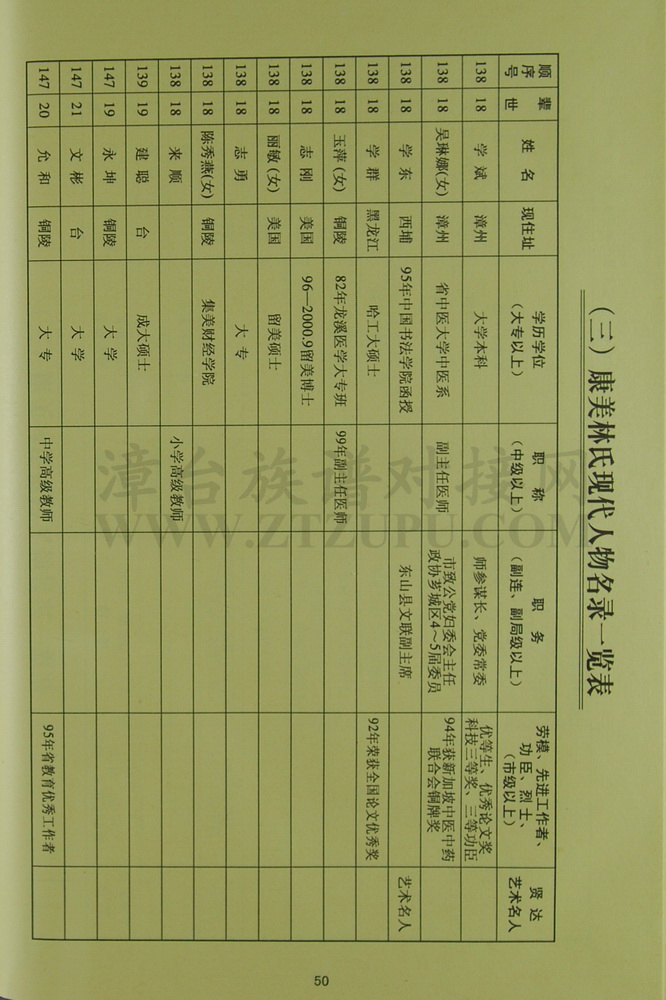 （三）康美林氏现代人物名录一览表
顺序号 辈世 姓名 现住址 学历学位（大专以上） 职称（中级以上） 职务（副连、副局级以上） 劳模、先进工作者、功臣、烈士、（市级以上） 贤达艺术名人
138 18 学斌 漳州 大学本科 师参谋长、党委常委 优等生、优秀论文奖科技三等奖、三等功臣
138 18 吴琳娜(女) 漳州 省中医大学中医系 副主任医师 市致公党妇委会主任政协芗城区4～5届委员 94年获新加坡中医中药联合会铜牌奖
138 18 学东 西埔 95年中国书法学院函授 东山县文联副主席 艺术名人
138 18 学群 黑龙江 哈工大硕士 92年荣获全国论文优秀奖
138 18 玉萍(女) 铜陵 82年龙溪医学大专班 99年副主任医师
138 18 志刚 美国 96—2000.9留美博士
138 18 丽敏(女) 美国 留美硕士
138 18 志勇 大专
138 18 陈秀燕(女) 铜陵 集美财经学院
138 18 来顺 小学高级教师
139 19 建聪 台 成大硕士
147 19 永坤 铜陵 大学
147 21 文彬 台 大学
147 20 允和 铜陵 大专 中学高级教师 95年省教育优秀工作者
50
漳台族谱对接网
WWW.ZTZUPU.COM